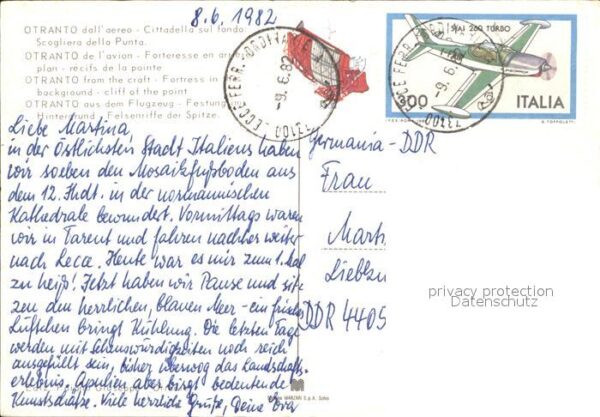 8.6.1982
OTRANTO dall'aereo - Cittadella sul fondo
Scogliera della Punta.
OTRANTO de l'avion - Forteresse en arrière
plan - recifs de la pointe
OTRANTO from the craft - Fortress in
background - cliff of the point
OTRANTO aus dem Flugzeug - Festung
Hintergrund - Felsenriffe der Spitze.
LECCE FERR. ORDINARIE
9.6.82
SIAI 260 TURBO
300
ITALIA
Liebe Martina,
in der östlichsten Stadt Italiens haben
wir soeben den Mosaikfußboden aus
dem 12. Jhdt. in der normannischen
Kathedrale bewundert. Vormittags waren
wir in Tarent und fahren nachher weiter
nach Lecce. Heute war es mir zum 1. Mal
zu heiß! Jetzt haben wir Pause und sit-
zen am herrlichen, blauen Meer - ein frisches
Lüftchen bringt Kühlung. Die letzten Tage
werden mit Sehenswürdigkeiten noch reich
ausgefüllt sein, bisher überwog das Landschafts-
erlebnis. Apulien aber birgt bedeutende
Kunstschätze. Viele herzliche Grüße, Deine Eva
Germania - DDR
Frau
Mart
Liebkn
DDR 4405
privacy protection
Datenschutz